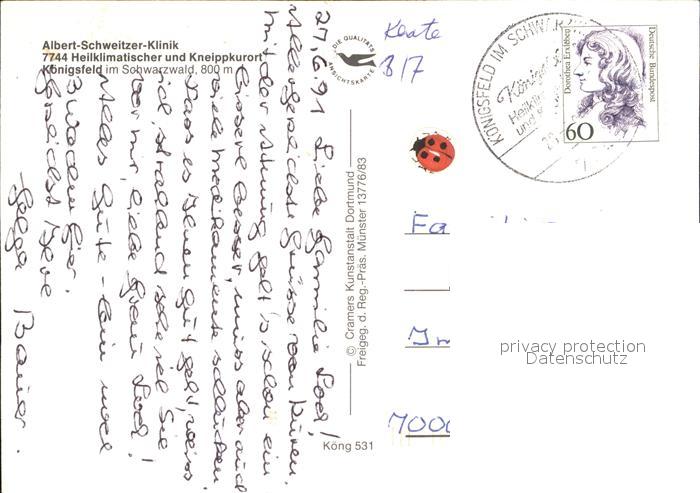 Albert-Schweitzer-Klinik
7744 Heilklimatischer und Kneippkurort
Königsfeld im Schwarzwald, 800 m
DIE QUALITÄTS
ANSICHTSKARTE
Karte
B/7
KÖNIGSFELD IM SCHWARZ
Königs
Heilklim
und
Dorothea Erxleben
Deutsche Bundespost
60
27.6.91 Liebe Familie
Allerherzlichste Grüsse von hier.
Mit der Atmung geht's schon ein
bisserl besser, muss aber auch
viele Medikamente schlucken.
Dass es Ihnen gut geht, weiss
ich,
vor mir, liebe Frau
Alles Gute - bin insel
3 Wochen hier.
Herzlichst Ihre
Helga Bauer.
© Cramers Kunstanstalt Dortmund
Freigeg. d. Reg.-Präs. Münster 13776/83
Köng 531
Fa
7000
privacy protection
Datenschutz